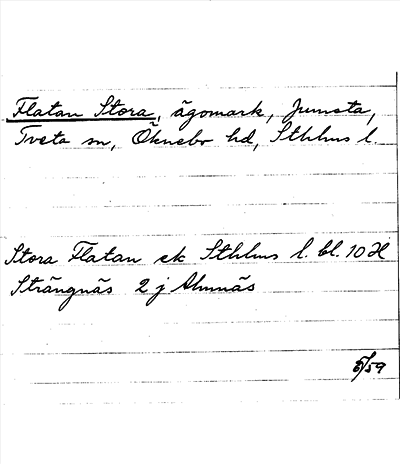 Flatan Stora, ägomark, Jumsta,
Tveta sn, Öknebo hd, Sthlms l.
Stora Flatan ek Sthlms l. bl. 10 H
Strängnäs 2 j Almnäs
5/59